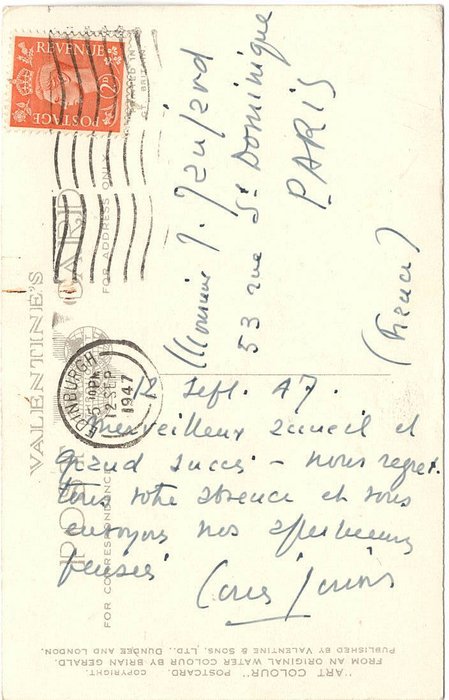 POSTAGE
REVENUE
2D
VALENTINE'S
POST CARD
FOR ADDRESS ONLY
FOR CORRESPONDANCE
EDINBURGH
5 10PM
12 SEP
1947
Monsieur J.
53 rue St Dominique
PARIS
(France)
12 Sept. 47.
Merveilleux accueil et
grand succès – nous regret-
tons votre absence et vous
envoyons nos affectueuses
pensées
"ART COLOUR" POSTCARD. COPYRIGHT.
FROM AN ORIGINAL WATER COLOUR BY BRIAN GERALD.
PUBLISHED BY VALENTINE & SONS, LTD., DUNDEE AND LONDON.